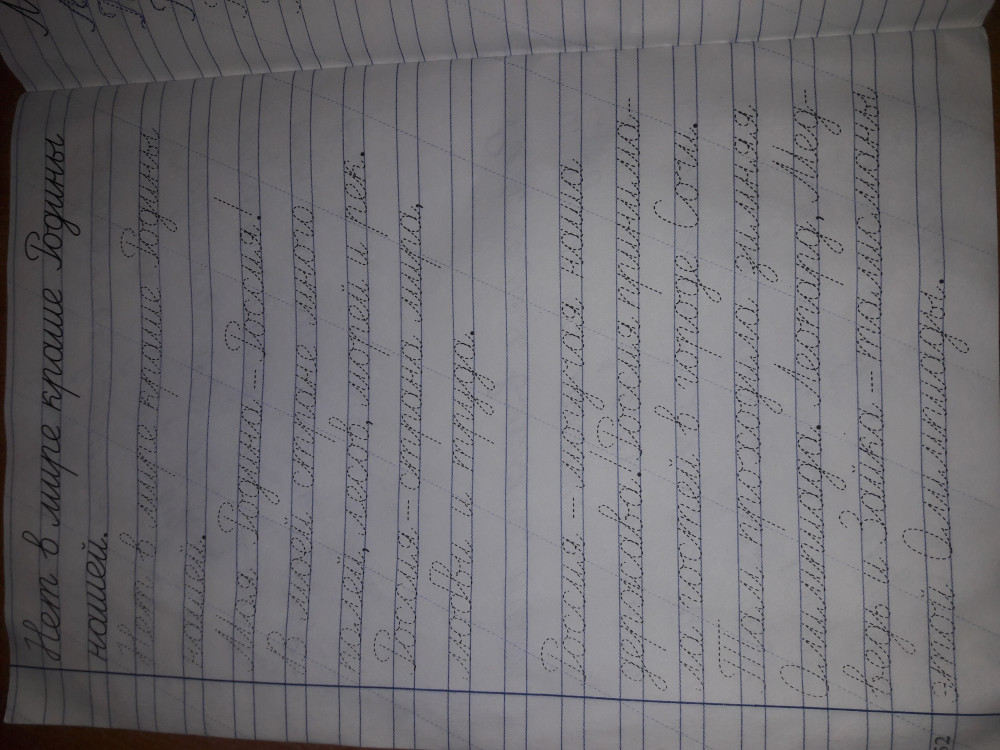 Нет в мире краше Родины
нашей.
Нет в мире краше Родины
нашей.
Моя Родина — Россия!
В моей стране много
полей, лесов, морей и рек.
Россия — страна мира,
любви и труда.
Россия — могучая наша
держава. Россия принима-
ла гостей в городе Сочи.
Там проходила зимняя
Олимпиада. Леопард, Мед-
ведь и Зайка — талисманы
этой Олимпиады.
2